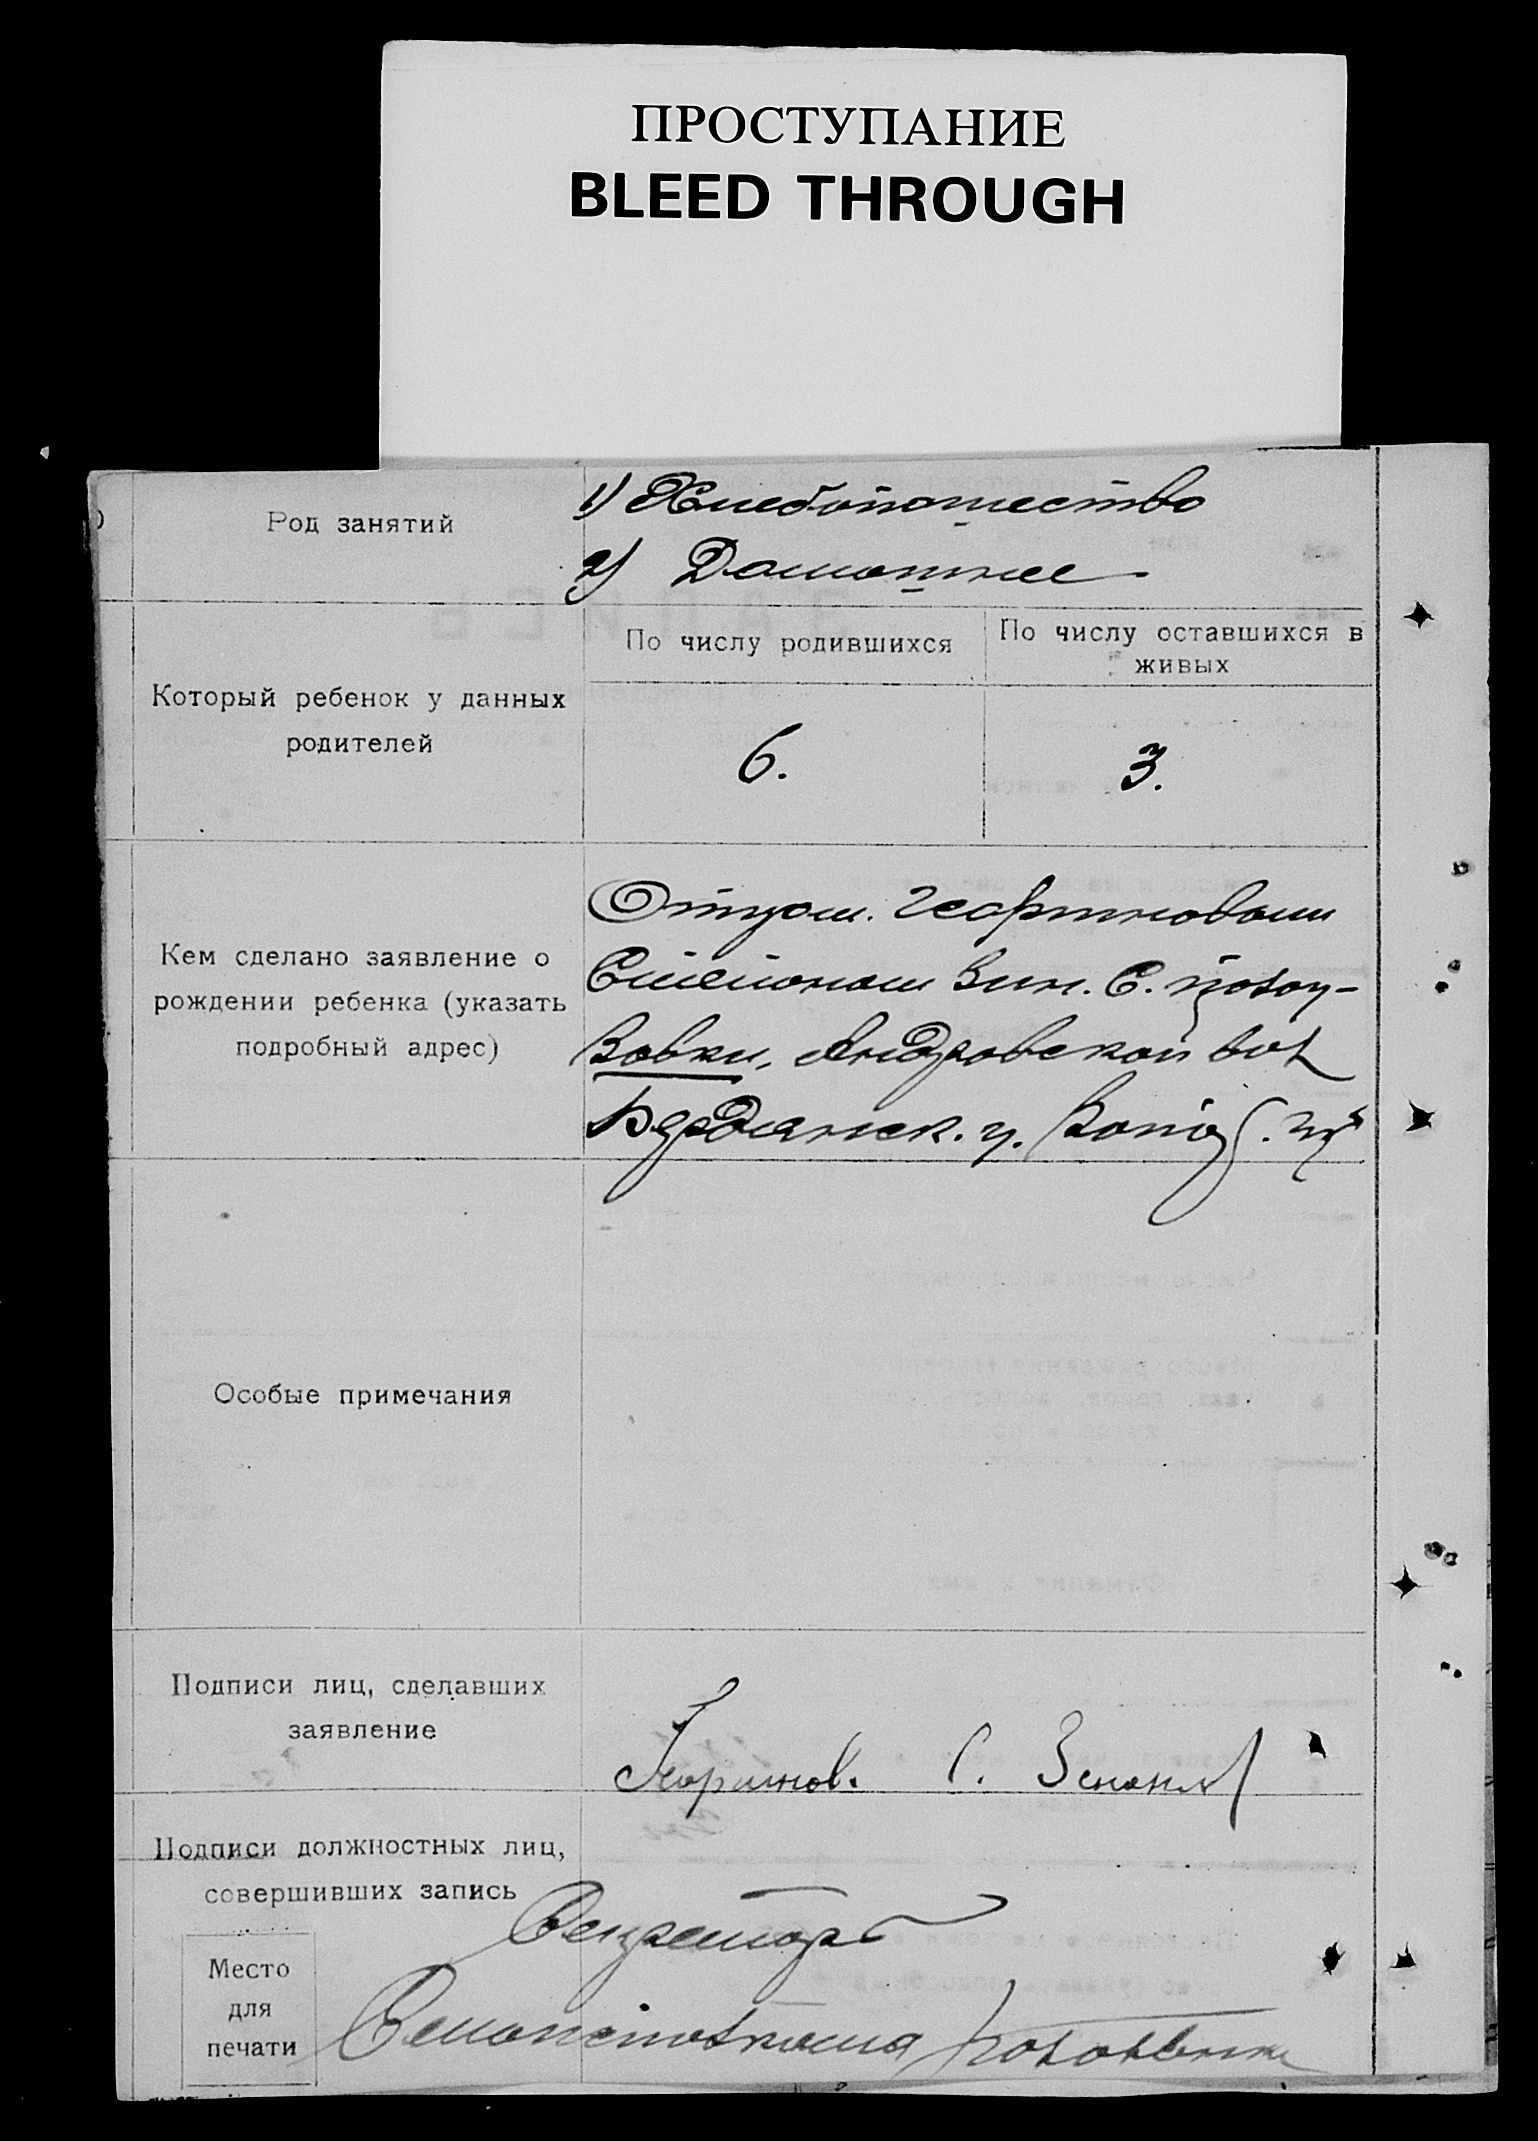 ПРОСТУПАНИЕ
BLEED THROUGH
Род занятий
1) Хлебопашество
2) Домашнее
Который ребенок у данных
родителей
По числу родившихся
По числу оставшихся в
живых
6.
3.
Кем сделано заявление о
рождении ребенка (указать
подробный адрес)
Отцом.
С.
Андровской вол
Бердянск. у.
Особые примечания
Подписи лиц, сделавших
заявление
С.
Подписи должностных лиц,
совершивших запись
Секретарь
Место
для
печати